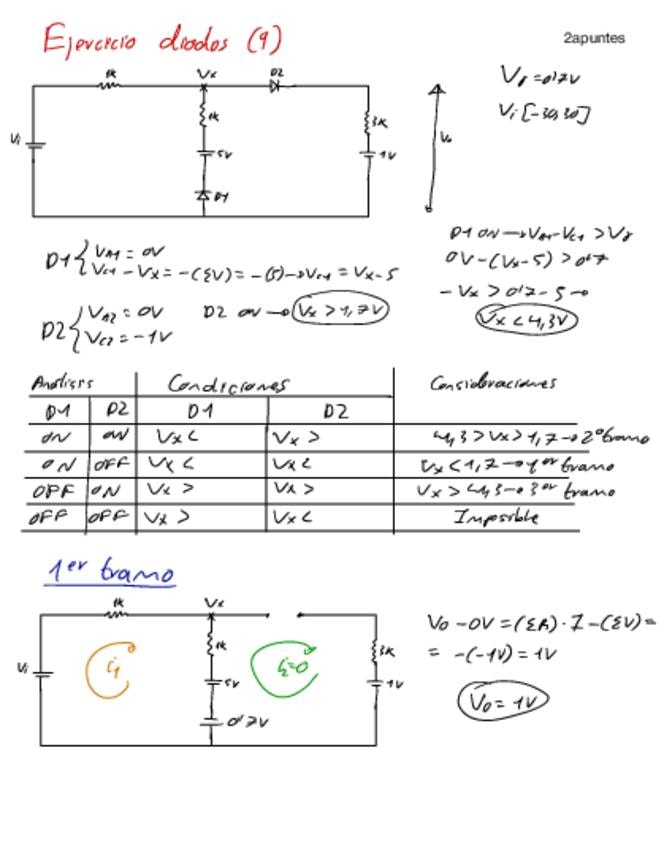 Ejercicio diodos (9)
2apuntes
1k
Vx
D2
1k
5V
D1
3K
1V
Vi
Vo
Vγ = 0'7V
Vi [-30,30]
D1 { VA1 = 0V
VC1 - VX = -(ΣV) = -(5) → VC1 = VX - 5
D2 { VA2 = 0V
VC2 = -1V
D2 ON → VX > 1,7V
D1 ON → VA1 - VC1 > Vγ
0V - (VX - 5) > 0'7
- VX > 0'7 - 5 →
VX < 4,3V
Análisis Condiciones Consideraciones
D1 D2 D1 D2
ON ON VX < VX > 4,3 > VX > 1,7 → 2º tramo
ON OFF VX < VX < VX < 1,7 → 1er tramo
OFF ON VX > VX > VX > 4,3 → 3er tramo
OFF OFF VX > VX < Imposible
1er tramo
1k
Vx
1k
5V
0'7V
3K
1V
Vi
i1
i2=0
Vo - 0V = (ΣR) · I - (ΣV) =
= -(-1V) = 1V
Vo = 1V